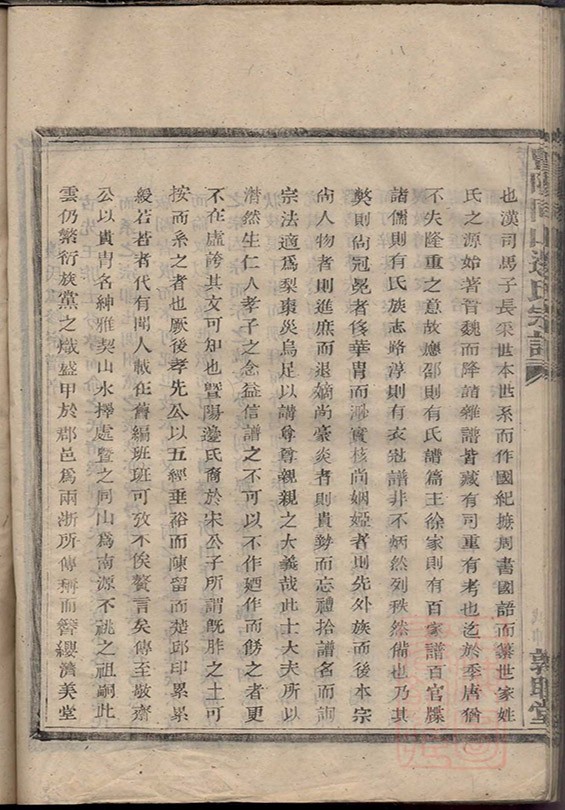 也漢司馬子長采世本世系而作國紀據周書國語而纂世家姓
氏之源始著晉魏而降諸雜譜皆藏有司重有考也迄於季唐猶
不失隆重之意故應邵則有氏譜篇王徐家則有百家譜百官牒
諸儒則有氏族志路淳則有衣冠譜非不炳然列秩然備也乃其
獘則尙冠冕者侈華冑而遯實核尚姻婭者則先外族而後本宗
尙人物者則進庶而退嫡尚豪炎者則貴勢而忘禮拾譜名而
宗法適爲梨棗災烏足以講尊尊親親之大義哉此士大夫所以
潸然生仁人孝子之念益信譜之不可以不作廼作而餝之者更
不在虛誇其文可知也暨陽邊氏裔於宋公子所謂旣胙之土可
按而系之者也厥後孝先公以五經垂裕而陳留而楚邱印累累
綬若若者代有聞人載在舊編班班可攷不俟贅言矣傳至敬齋
公以貴冑名紳雅契山水擇處暨之同山爲南源不祧之祖嗣此
雲仍繁衍族黨之熾盛甲於郡邑爲兩浙所傳稱而簪纓濟美堂
暨陽同山邊氏宗譜
敦睦堂